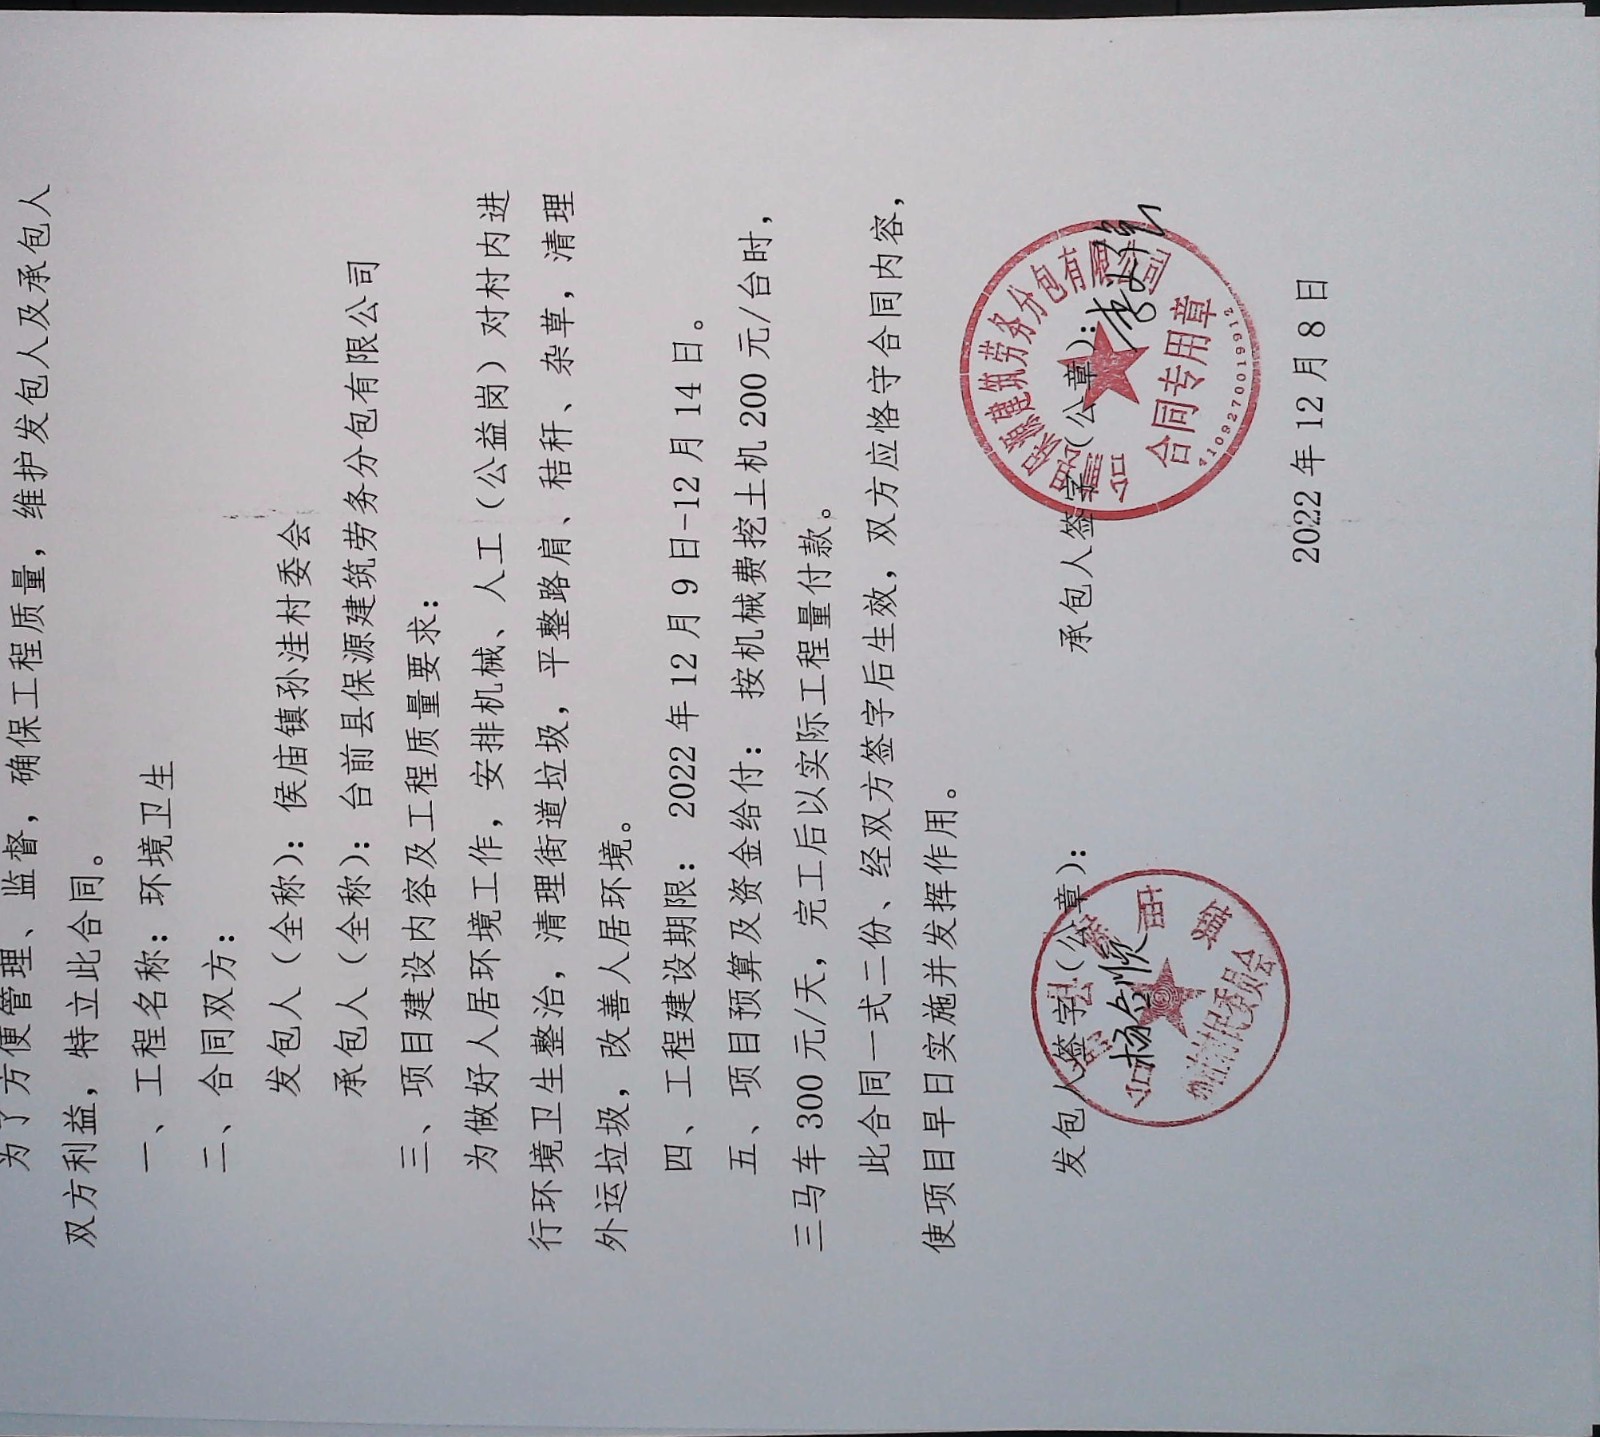 为了方便管理、监督，确保工程质量，维护发包人及承包人
双方利益，特立此合同。
一、工程名称：环境卫生
二、合同双方：
发包人（全称）：侯庙镇孙洼村委会
承包人（全称）：台前县保源建筑劳务分包有限公司
三、项目建设内容及工程质量要求：
为做好人居环境工作，安排机械、人工（公益岗）对村内进
行环境卫生整治，清理街道垃圾，平整路肩、秸秆、杂草，清理
外运垃圾，改善人居环境。
四、工程建设期限：2022 年 12 月 9 日-12 月 14 日。
五、项目预算及资金给付：按机械费挖土机 200 元/台时，
三马车 300 元/天，完工后以实际工程量付款。
此合同一式二份、经双方签字后生效，双方应恪守合同内容，
使项目早日实施并发挥作用。
发包人签字（公章）：
承包人签字（公章）：
保源建筑劳务分包有限公司
合同专用章
村民委员会
2022 年 12 月 8 日